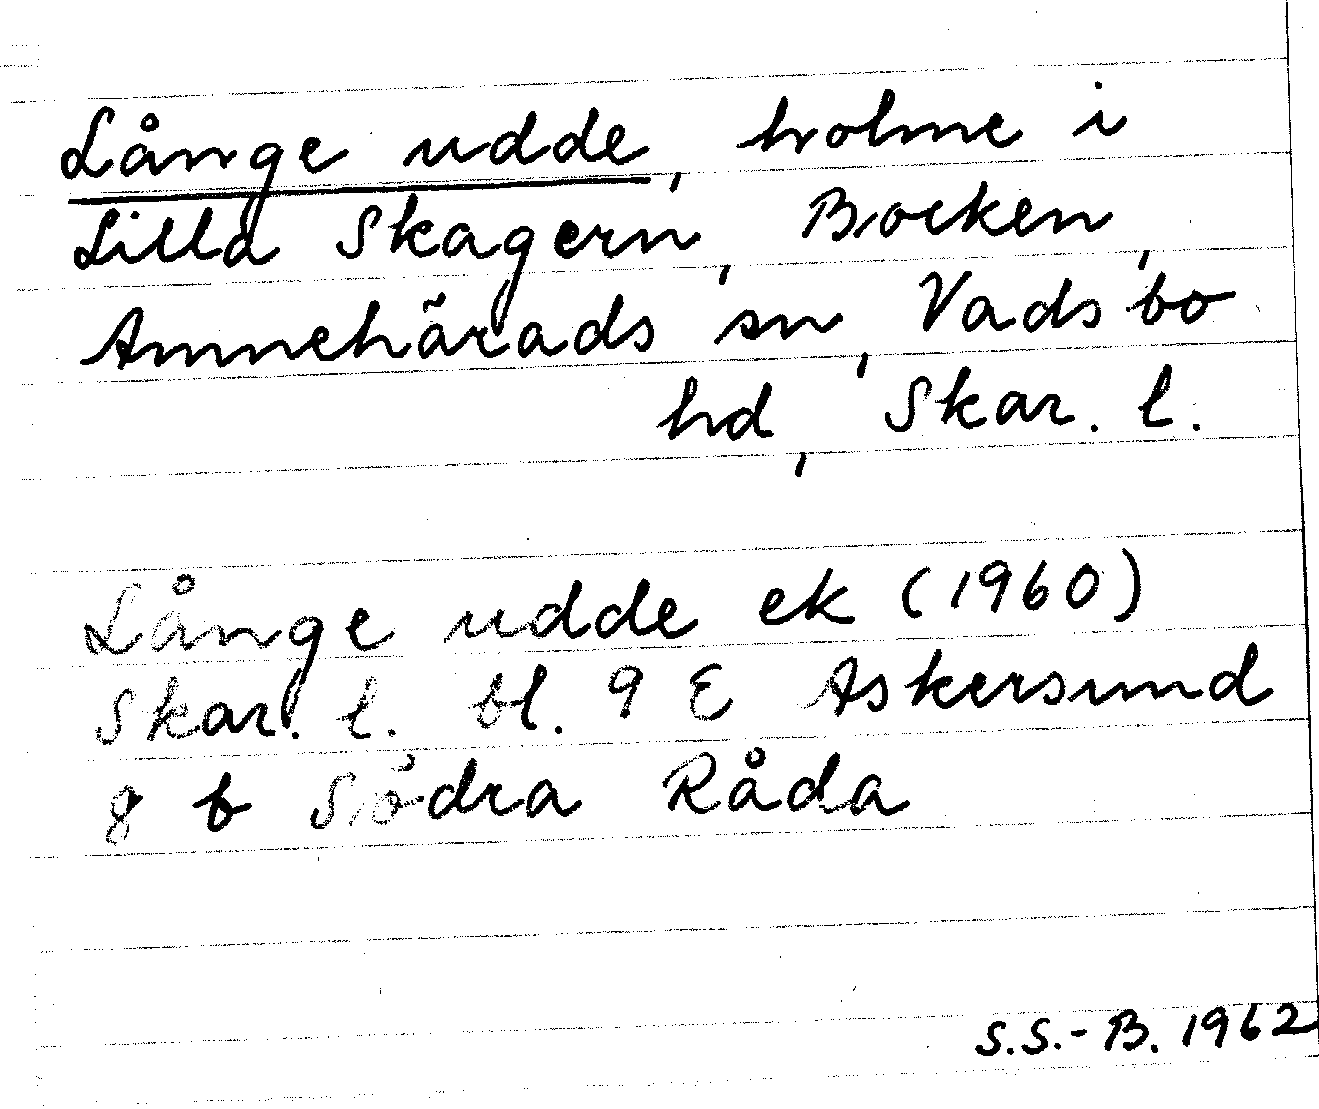 Långe udde, holme i
Lilla Skagern, Bocken,
Amnehärads sn, Vadsbo
hd, Skar. l.
Långe udde ek (1960)
Skar. l. bl. 9 E Askersund
8 b Södra Råda
S.S.-B. 1962